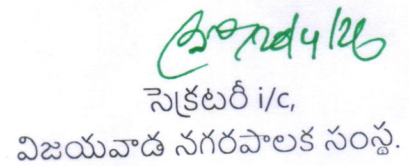 సెక్రటరీ i/c,
విజయవాడ నగరపాలక సంస్థ.